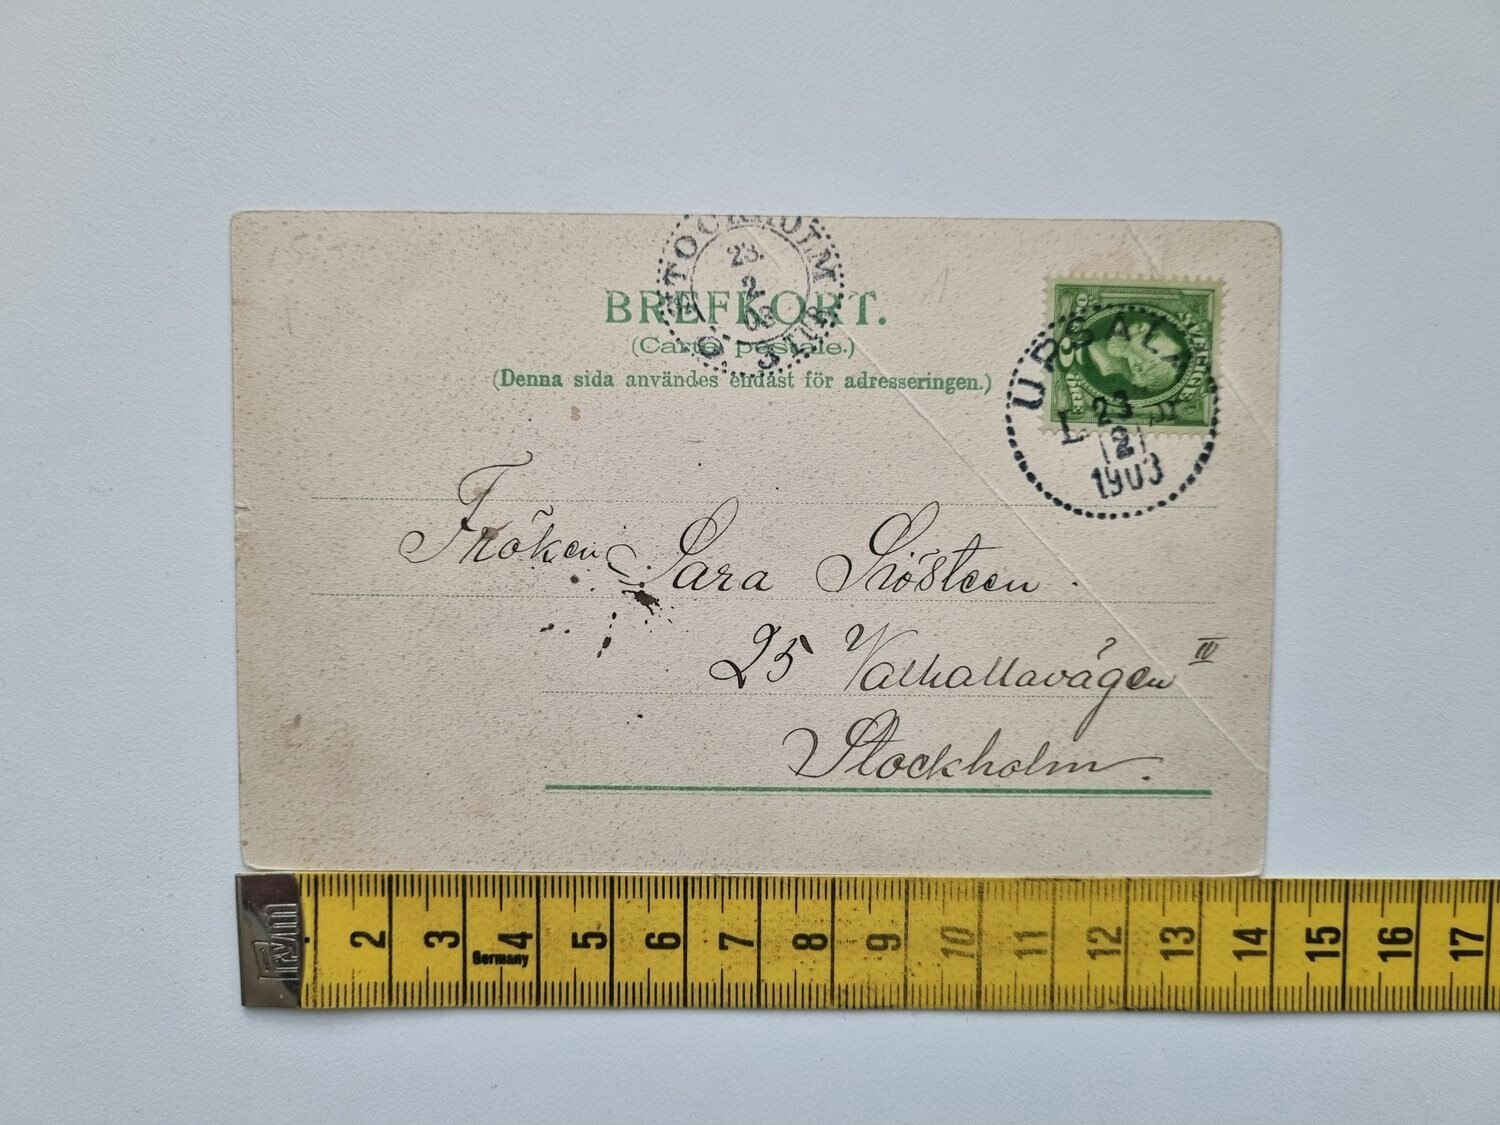 STOCKHOLM
23.
2.
03
BREFKORT.
(Carte postale.)
(Denna sida användes endast för adresseringen.)
SVERIGE
5 ÖRE
UPSALA
23
2
1903
Fröken Sara Sjösteen.
25 Valhallavägen IV
Stockholm.
2 3 4 5 6 7 8 9 10 11 12 13 14 15 16 17
Germany